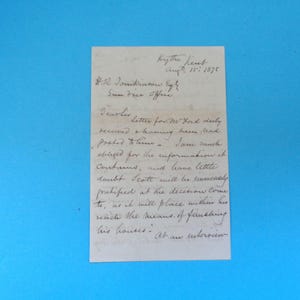 Hythe Kent
Augt 15th 1875
H. R. Tomkinson Esqr
Sun Fire Office
Dear Sir
Letter for Mr Ford duly
received & having been read
posted to him. I am much
obliged for the information it
contains, and have little
doubt Scott will be
gratified at the decision come
to, as it will place within his
the means of finishing
his houses.
At an interview